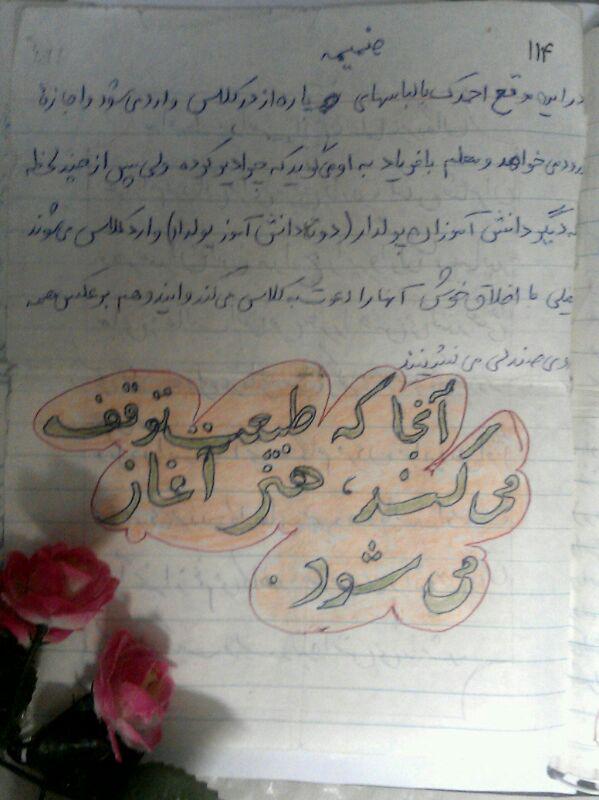 ۱۱۴
ضمیمه
در این موقع احمدک با لباسهای پاره از در کلاس وارد می شود و اجازهٔ
ورود می خواهد و معلم با فریاد به او می گوید که چرا دیر کرده ولی پس از چند لحظه
که دیگر دانش آموزان پولدار (دو تا دانش آموز پولدار) وارد کلاس می شوند
خیلی با اخلاق خوش آنها را دعوت به کلاس می کند و ایندو هم بر عکس همه
روی صندلی می نشینند
آنجا که طبیعت توقف
می کند، هنر آغاز
می شود.